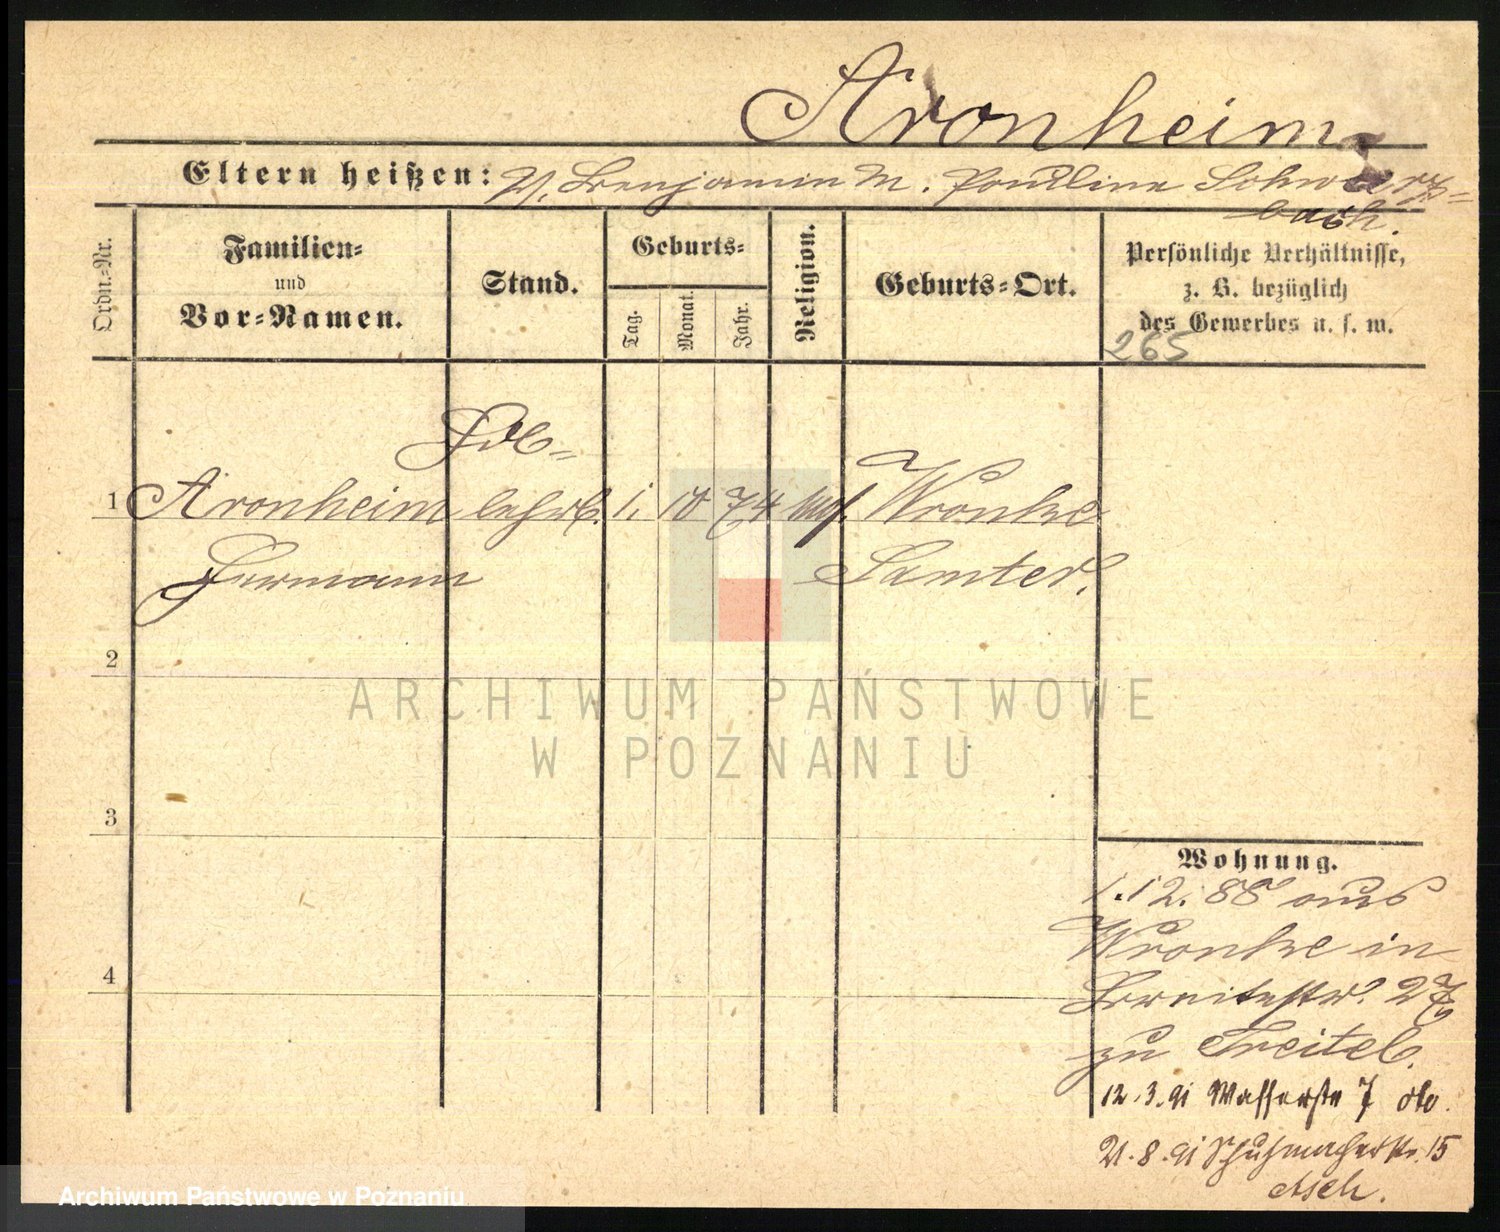 Aronheim
Eltern heißen: V. Benjamin M. Pauline Schwarz=
bach.
Ordn.-Nr.
Familien=
und
Vor=Namen.
Stand.
Geburts=
Tag.
Monat.
Jahr.
Religion.
Geburts=Ort.
Persönliche Verhältnisse,
z. B. bezüglich
des Gewerbes u. s. w.
265
1 Aronheim 1. 10 74 mos. Wronke
Hermann Samter.
2
3
4
Wohnung.
1.12.88 aus
Wronke in
Breitestr. 27
zu Treitel.
12.3.91 Wasserstr 7 do.
21.8.91 Schuhmacherstr. 15
Asch.
ARCHIWUM PAŃSTWOWE
W POZNANIU
Archiwum Państwowe w Poznaniu